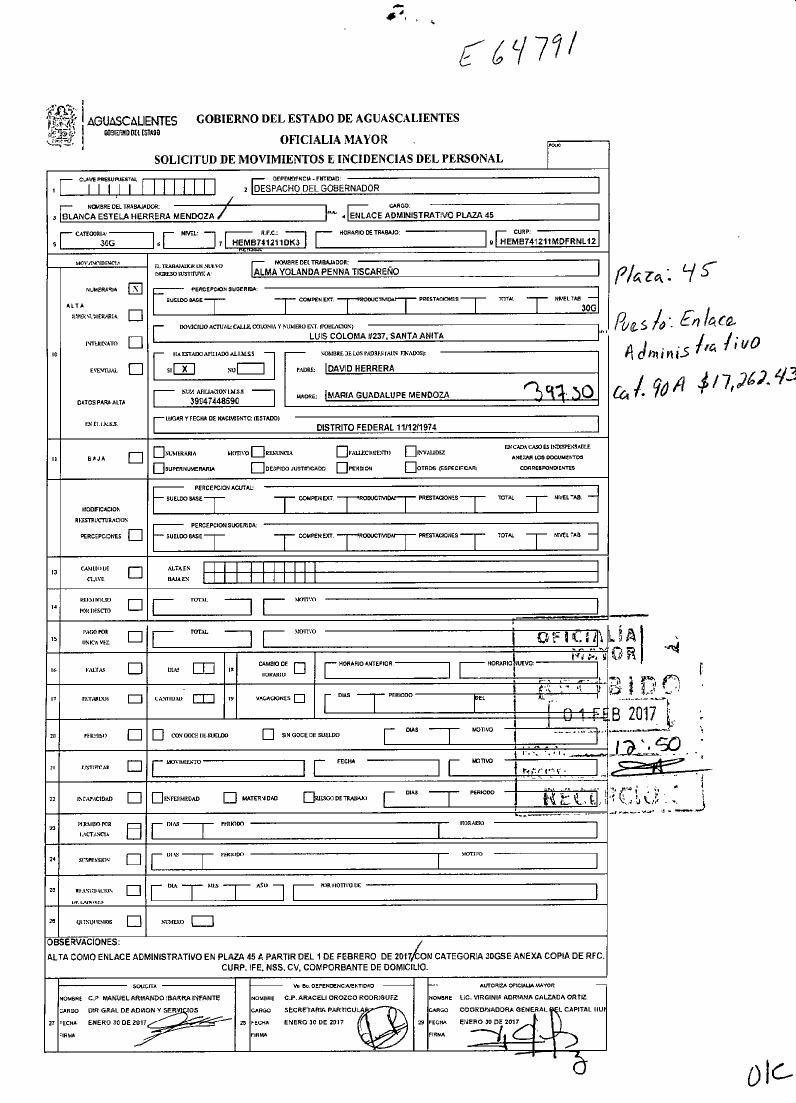 E 64791
AGUASCALIENTES
GOBIERNO DEL ESTADO
GOBIERNO DEL ESTADO DE AGUASCALIENTES
OFICIALIA MAYOR
SOLICITUD DE MOVIMIENTOS E INCIDENCIAS DEL PERSONAL
FOLIO
1 CLAVE PRESUPUESTAL
2 DEPENDENCIA - ENTIDAD: DESPACHO DEL GOBERNADOR
3 NOMBRE DEL TRABAJADOR: BLANCA ESTELA HERRERA MENDOZA
4 CARGO: ENLACE ADMINISTRATIVO PLAZA 45
5 CATEGORIA: 30G
6 NIVEL:
7 R.F.C.: HEMB741211DK3
HORARIO DE TRABAJO:
9 CURP: HEMB741211MDFRNL12
MOV/INCIDENCIA
EL TRABAJADOR DE NUEVO INGRESO SUSTITUYE A:
NOMBRE DEL TRABAJADOR: ALMA YOLANDA PENNA TISCAREÑO
Plaza: 45
NUMERARIA X
PERCEPCION SUGERIDA:
ALTA
SUELDO BASE COMPEN EXT. PRODUCTIVIDAD PRESTACIONES TOTAL NIVEL TAB
30G
SUPERNUMERARIA
Puesto: Enlace
Administrativo
DOMICILIO ACTUAL: CALLE, COLONIA Y NUMERO EXT. (POBLACION)
LUIS COLOMA #237, SANTA ANITA
INTERINATO
10
HA ESTADO AFILIADO AL I.M.S.S
NOMBRE DE LOS PADRES (AUN FINADOS):
EVENTUAL
SI X NO
PADRE: DAVID HERRERA
Cat. 90A $17,262.43
DATOS PARA ALTA
NUM AFILIACION I.M.S.S
39947448590
MADRE: MARIA GUADALUPE MENDOZA
397.50
EN EL I.M.S.S.
LUGAR Y FECHA DE NACIMIENTO: (ESTADO)
DISTRITO FEDERAL 11/12/1974
11 BAJA
NUMERARIA MOTIVO RENUNCIA FALLECIMIENTO INVALIDEZ
SUPERNUMERARIA DESPIDO JUSTIFICADO PENSION OTROS (ESPECIFICAR)
EN CADA CASO ES INDISPENSABLE
ANEXAR LOS DOCUMENTOS
CORRESPONDIENTES
PERCEPCION ACUTAL:
SUELDO BASE COMPEN EXT. PRODUCTIVIDAD PRESTACIONES TOTAL NIVEL TAB.
MODIFICACION
REESTRUCTURACION
PERCEPCIONES
PERCEPCION SUGERIDA:
SUELDO BASE COMPEN EXT. PRODUCTIVIDAD PRESTACIONES TOTAL NIVEL TAB.
13 CAMBIO DE CLAVE
ALTA EN
BAJA EN
14 REEMBOLSO POR DESCTO TOTAL MOTIVO
15 PAGO POR UNICA VEZ TOTAL MOTIVO
OFICIALÍA
MAYOR
16 FALTAS DIAS 18 CAMBIO DE HORARIO HORARIO ANTERIOR HORARIO NUEVO:
RECIBIDO
17 RETARDOS CANTIDAD 19 VACACIONES DIAS PERIODO DEL
01 FEB 2017
20 PERMISO CON GOCE DE SUELDO SIN GOCE DE SUELDO DIAS MOTIVO
12:50
21 JUSTIFICAR MOVIMIENTO FECHA MOTIVO
22 INCAPACIDAD ENFERMEDAD MATERNIDAD RIESGO DE TRABAJO DIAS PERIODO
RECEPCION
23 PERMISO POR LACTANCIA DIAS PERIODO HORARIO
24 SUSPENSION DIAS PERIODO MOTIVO
25 REANUDACION DE LABORES DIA MES AÑO POR MOTIVO DE
26 QUINQUENIOS NUMERO
OBSERVACIONES:
ALTA COMO ENLACE ADMINISTRATIVO EN PLAZA 45 A PARTIR DEL 1 DE FEBRERO DE 2017 CON CATEGORIA 30GSE ANEXA COPIA DE RFC.
CURP. IFE, NSS. CV, COMPORBANTE DE DOMICILIO.
SOLICITA
NOMBRE C.P MANUEL ARMANDO IBARRA INFANTE
CARGO DIR GRAL DE ADMON Y SERVICIOS
27 FECHA ENERO 30 DE 2017
FIRMA
Vo Bo. DEPENDENCIA/ENTIDAD
NOMBRE C.P. ARACELI OROZCO RODRIGUEZ
CARGO SECRETARIA PARTICULAR
28 FECHA ENERO 30 DE 2017
FIRMA
AUTORIZA OFICIALIA MAYOR
NOMBRE LIC. VIRGINIA ADRIANA CALZADA ORTIZ
CARGO COORDINADORA GENERAL DEL CAPITAL HUM
29 FECHA ENERO 30 DE 2017
FIRMA